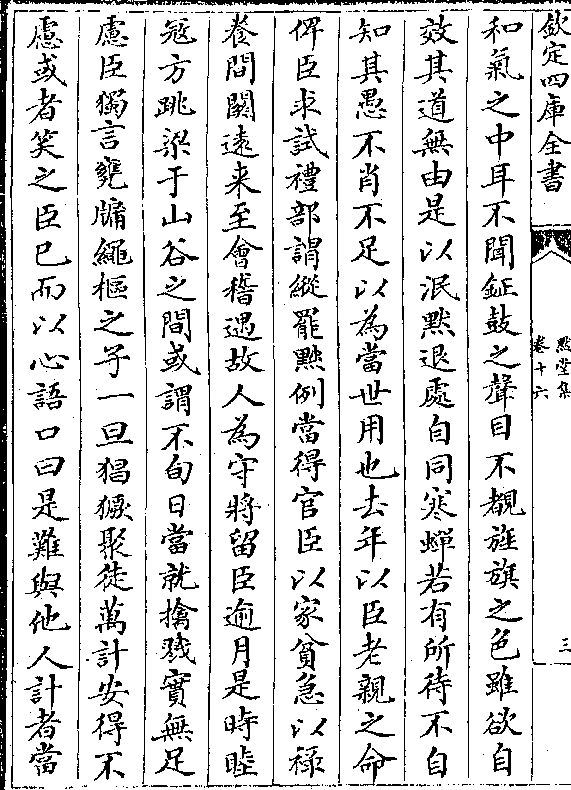 欽定四庫全書
默堂集
卷十六
三
和氣之中耳不聞鉦鼓之聲目不覩旌旗之色雖欲自
效其道無由是以泯默退處自同寒蟬若有所待不自
知其愚不肖不足以為當世用也去年以臣老親之命
俾臣求試禮部謂縱罷黜例當得官臣以家貧急以祿
養間關遠来至會稽遇故人為守將留臣逾月是時睦
冦方跳梁于山谷之間或謂不旬日當就擒戮實無足
慮臣獨言甕牖繩樞之子一旦猖獗聚徒萬計安得不
慮或者笑之臣已而以心語口曰是難與他人計者當